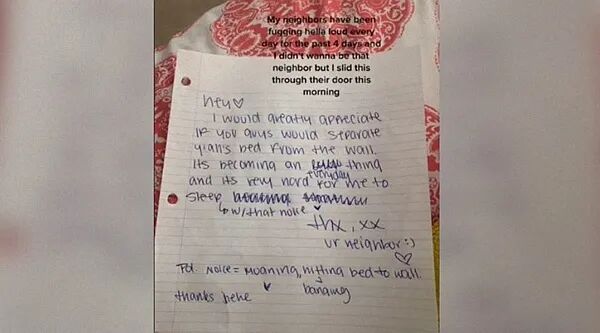 My neighbors have been
fugging hella loud every
day for the past 4 days and
I didn't wanna be that
neighbor but I slid this
through their door this
morning
hey♡
I would greatly appreciate
if you guys would separate
your bed from the wall.
Its becoming an everyday thing
and its very hard for me to
sleep
w/ that noise
thx, xx
ur neighbor :)
♡
Noise = moaning, hitting bed to wall.
banging
thanks hehe